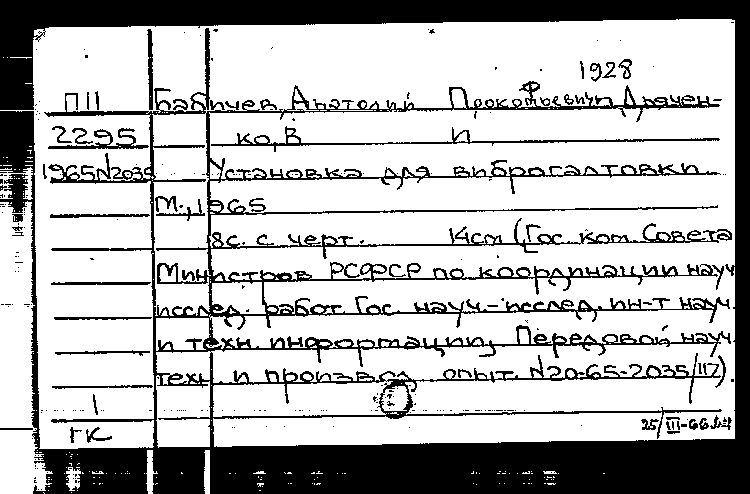 1928
П11 Бабичев, Анатолий Прокофьевич, Дьячен-
2295 ко, В И
1965N2035 Установка для виброгалтовки.
М., 1965
8с. с черт. 14см (Гос. ком. Совета
Министров РСФСР по координации науч
исслед. работ. Гос. науч.-исслед. ин-т науч.
и техн. информации, Передовой науч
техн. и производ. опыт. N20-65-2035/112).
1
ГК
25/III-66